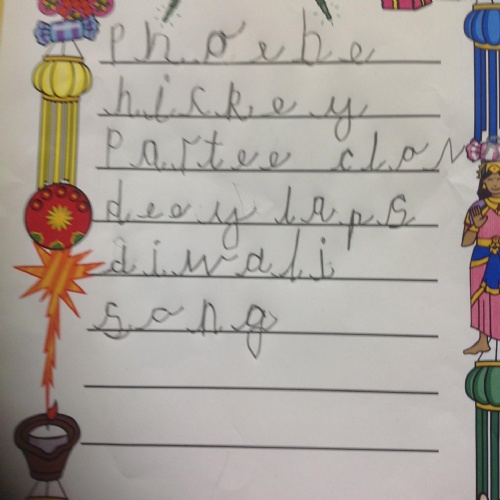 Phoebe
hickey
Partee clos
deey laps
diwali
song